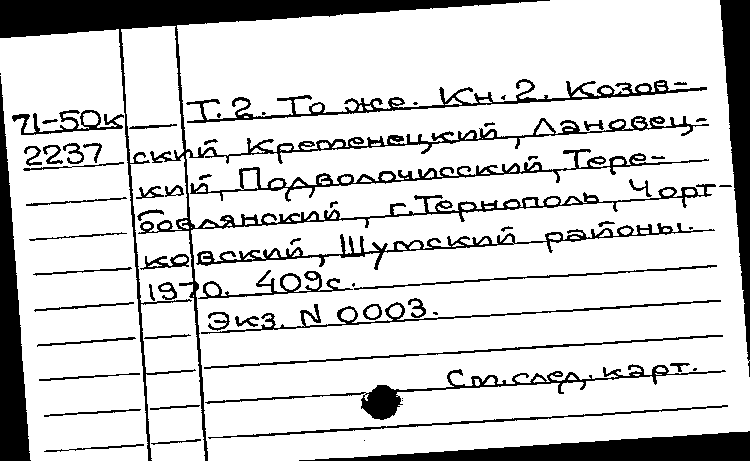 71-50к Т.2. То же. Кн.2. Козов-
2237 ский, Кременецкий, Лановец-
кий, Подволочисский, Тере-
бовлянский, г.Тернополь, Чорт-
ковский, Шумский районы.
1970. 409с.
Экз. N 0003.
См. след. карт.